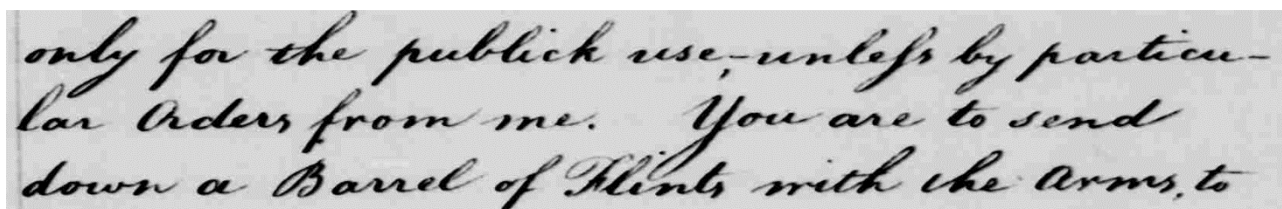 only for the publick use,-unless by particu-
lar Orders from me. You are to send
down a Barrel of Flints with the Arms, to